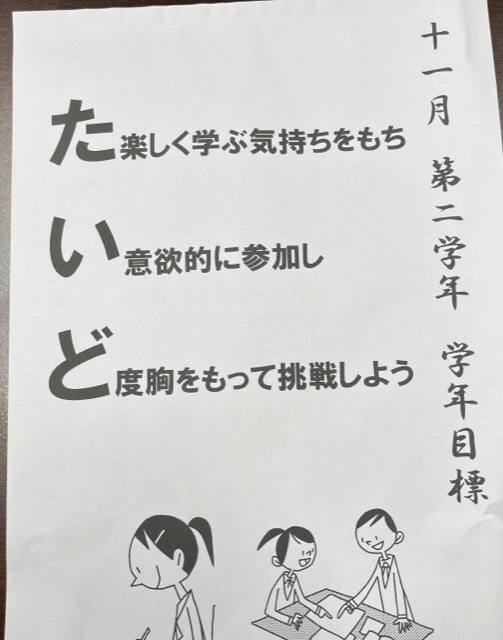 十一月 第二学年 学年目標
た 楽しく学ぶ気持ちをもち
い 意欲的に参加し
ど 度胸をもって挑戦しよう